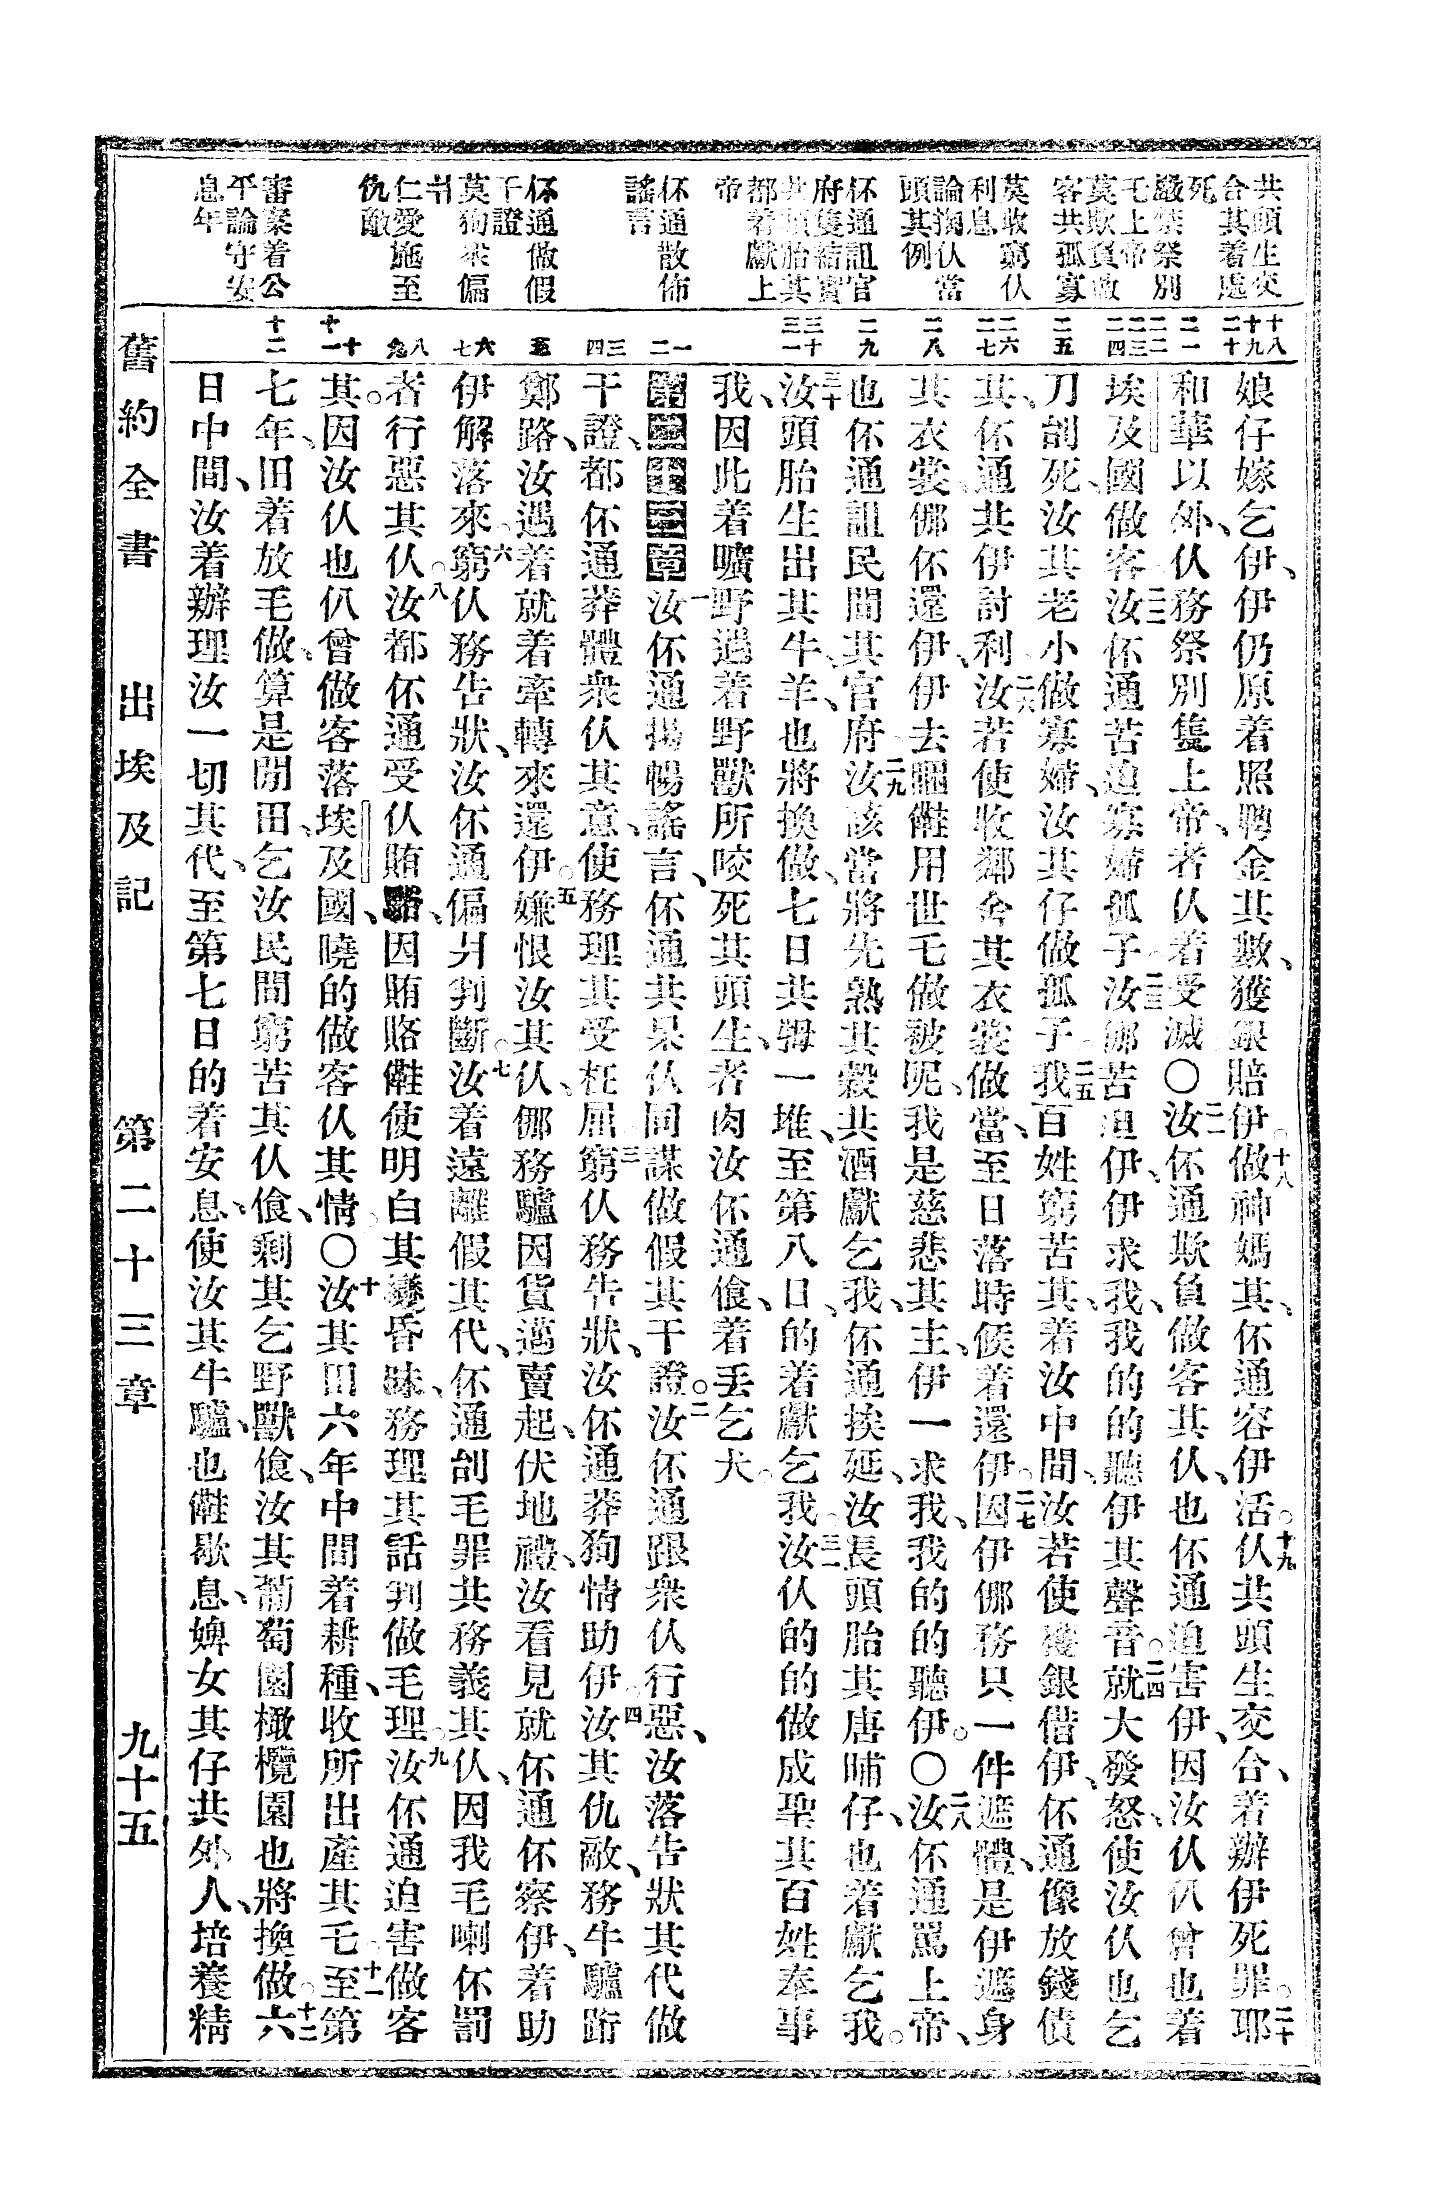 共頭生交
合其着處
死
嚴禁祭別
乇上帝
莫欺負做
客共孤寡
莫收窮仫
利息
論掏仫當
頭其例
伓通詛官
府隻結實
共頭胎其
都着獻上
帝
伓通散佈
謠言
伓通做假
干證
莫狥衆偏
幷
仁愛施至
仇敵
審案着公
平論守安
息年
十八
十九
二十
二一
二二
二三
二四
二五
二六
二七
二八
二九
三十
三一
一
二
三
四
五
六
七
八
九
十
十一
十二
娘仔嫁乞伊、伊仍原着照聘金其數、獲銀賠伊。十八做神媽其、伓通容伊活。十九仫共頭生交合、着辦伊死罪。二十耶
和華以外、仫務祭別隻上帝、者仫着受滅〇二一汝伓通欺負做客其仫、也伓通迫害伊、因汝仫仈曾也着
埃及國做客。二二汝伓通苦迫寡婦孤子。二三汝𠆧苦迫伊、伊求我、我的的聽伊其聲音。二四就大發怒、使汝仫也乞
刀刣死、汝其老小做寡婦、汝其仔做孤子。二五我百姓窮苦其、着汝中間、汝若使獲銀借伊、伓通像放錢債
其、伓通共伊討利。二六汝若使收鄰舍其衣裳做當、至日落時候着還伊。二七因伊𠆧務只一件遮體、是伊遮身
其衣裳、𠆧伓還伊、伊去𥆧𣍐用世乇做被呢、我是慈悲其主、伊一求我、我的的聽伊。〇二八汝伓通罵上帝、
也伓通詛民間其官府。二九汝該當將先熟其穀共酒獻乞我、伓通挨延、汝長頭胎其唐晡仔、也着獻乞我。
三十汝頭胎生出其牛、羊、也將換做、七日共㛮一堆、至第八日、的着獻乞我。三一汝仫的的做成聖其百姓奉事
我、因此着曠野遏着野獸所咬死其頭生、者肉汝伓通飡、着丟乞犬。
第二十三章一汝伓通揚暢謠言、伓通共呆仫同謀做假其干證。二汝伓通跟衆仫行惡、汝落告狀其代做
干證、都伓通莽體衆仫其意、使務理其受枉屈。三窮仫務告狀、汝伓通莽狥情助伊。四汝其仇敵、務牛驢跡
鄭路、汝遇着就着牽轉來還伊。五嫌恨汝其仫、𠆧務驢因貨邁賣起、伏地禮、汝看見就伓通伓察伊、着助
伊解落來。六窮仫務告狀、汝伓通偏幷判斷。七汝着遠離假其代、伓通刣毛罪共務義其仫、因我毛喇伓罰
者行惡其仫。八汝都伓通受仫賄賂、因賄賂𣍐使明白其變昏昧、務理其話判做毛理。九汝伓通迫害做客
其。因汝仫也仈曾做客落埃及國、曉的做客仫其情。〇十汝其田六年中間着耕種、收所出產其乇。十一至第
七年、田着放毛做、算是閒田、乞汝民間窮苦其仫飡、剩其乞野獸飡、汝其葡萄園橄欖園也將換做。十二六
日中間、汝着辦理汝一切其代、至第七日的着安息、使汝其牛驢、也𣍐歇息、婢女其仔共外人、培養精
舊約全書　出埃及記　第二十三章　九十五